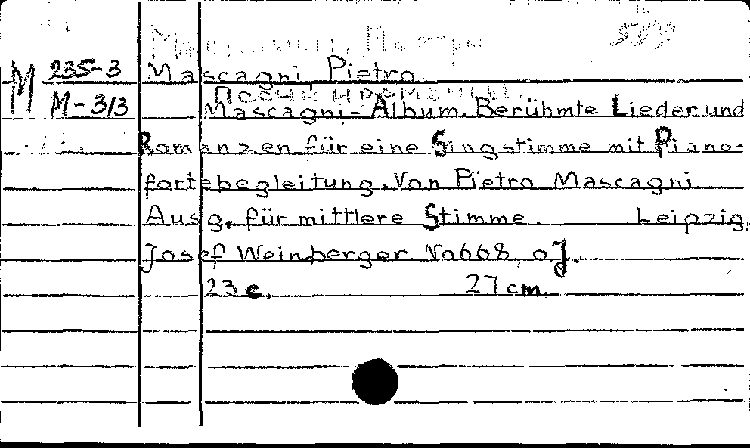 Масканьи, Пьетро
M 235-3 Mascagni, Pietro.
M-313 Mascagni-Album. Berühmte Lieder und
Romanzen für eine Singstimme mit Piano-
fortebegleitung. Von Pietro Mascagni
Ausg. für mittlere Stimme. Leipzig,
Josef Weinberger No668, oJ.
23 c. 27 cm.